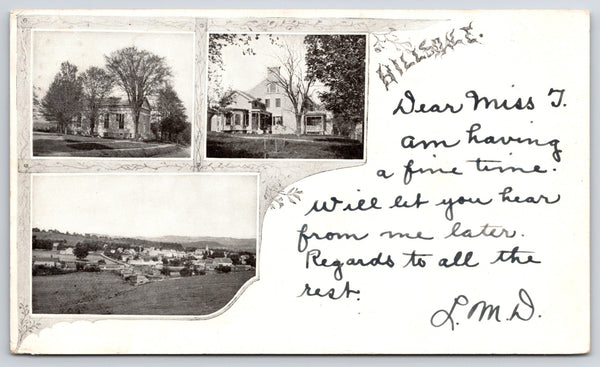 HILLSDALE.
Dear Miss T.
am having
a fine time.
Will let you hear
from me later.
Regards to all the
rest.
L. M. D.